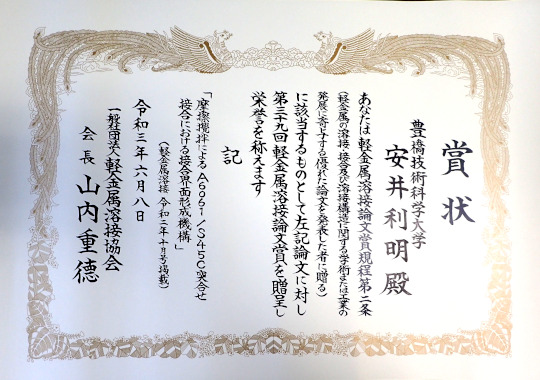 賞状
豊橋技術科学大学
安井利明殿
あなたは軽金属溶接論文賞規程第二条
(軽金属の溶接、接合及び溶接構造に関する学術または工業の
発展に寄与する優れた論文を発表した者に贈る)
に該当するものとして左記論文に対し
第三十九回軽金属溶接論文賞を贈呈し
栄誉を称えます
記
「摩擦攪拌によるA6061/S45C突合せ
接合における接合界面形成機構」
(軽金属溶接 令和二年十月号掲載)
令和三年六月八日
一般社団法人軽金属溶接協会
会長 山内重徳